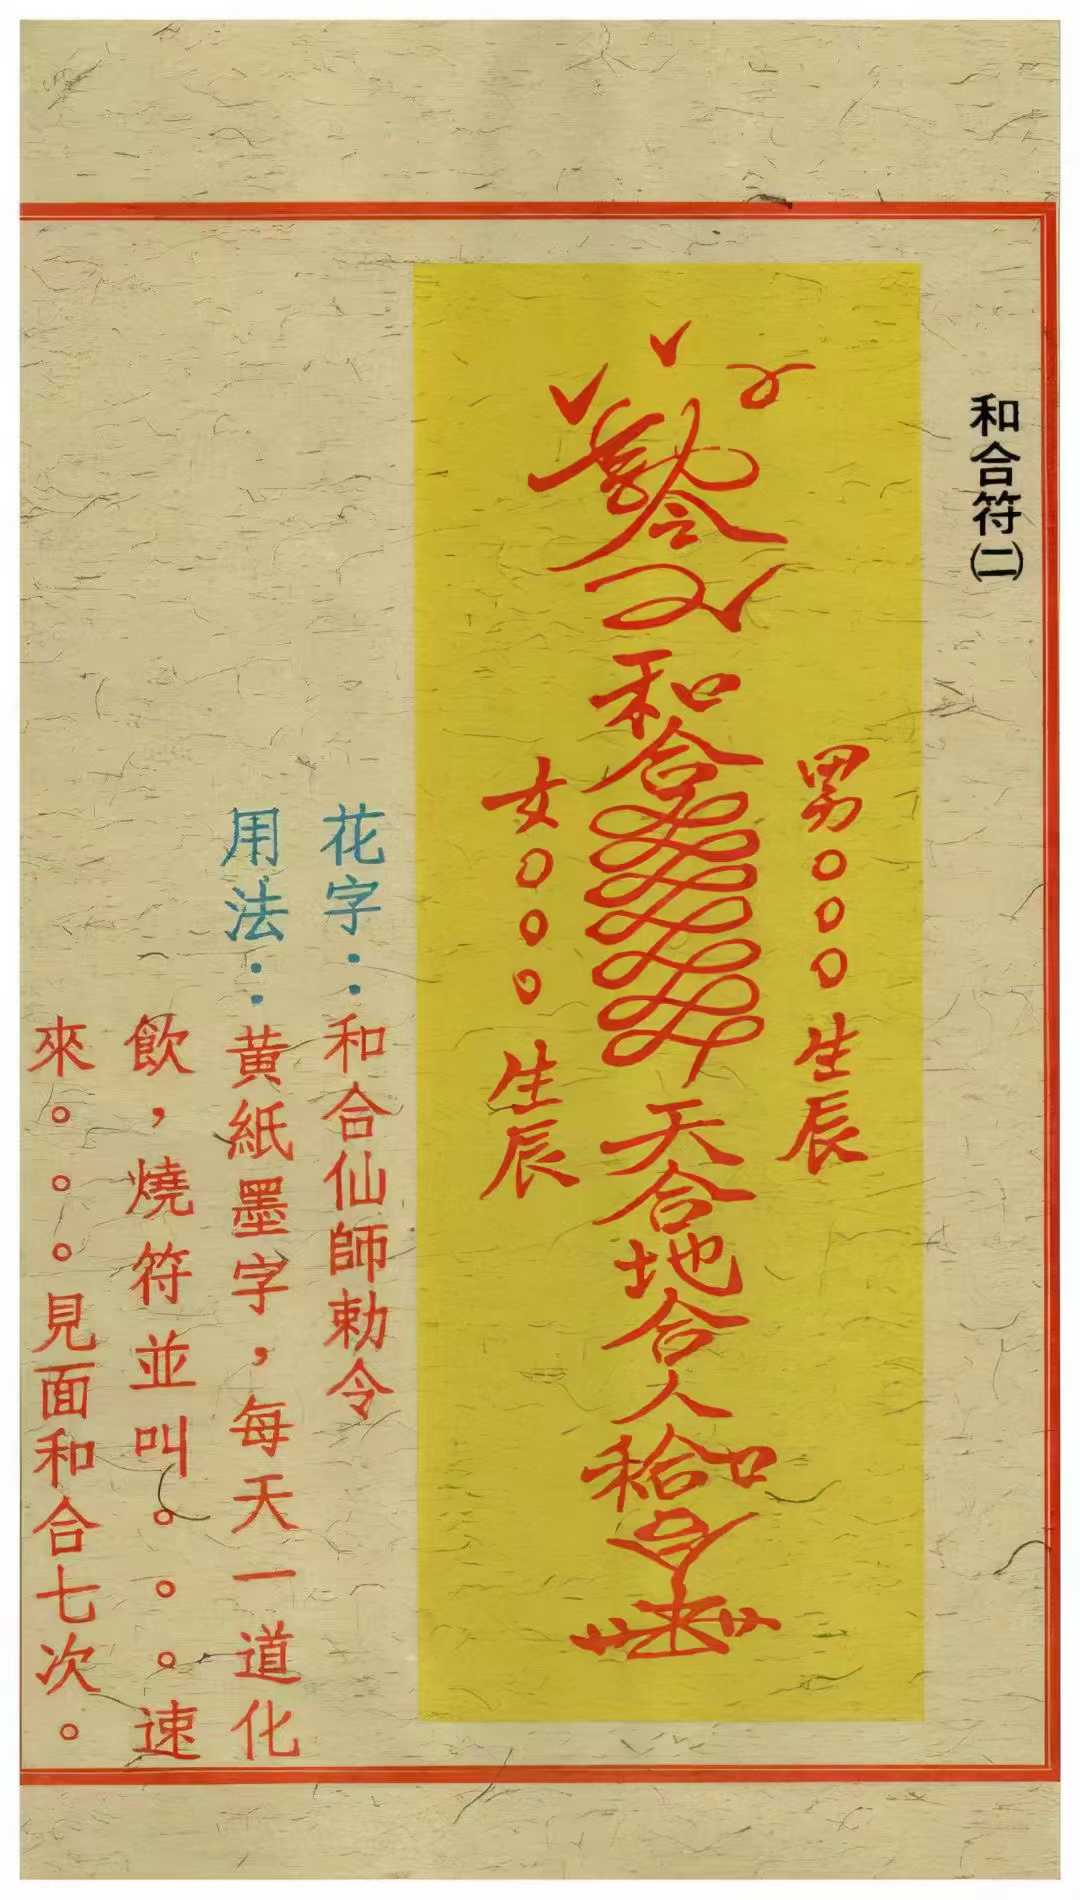 和合符㈡
男○○○生辰
勅令
和合
天合地合人和合
女○○○生辰
花字：和合仙師勅令
用法：黃紙墨字，每天一道化
飲，燒符並叫。。。速
來。。。見面和合七次。